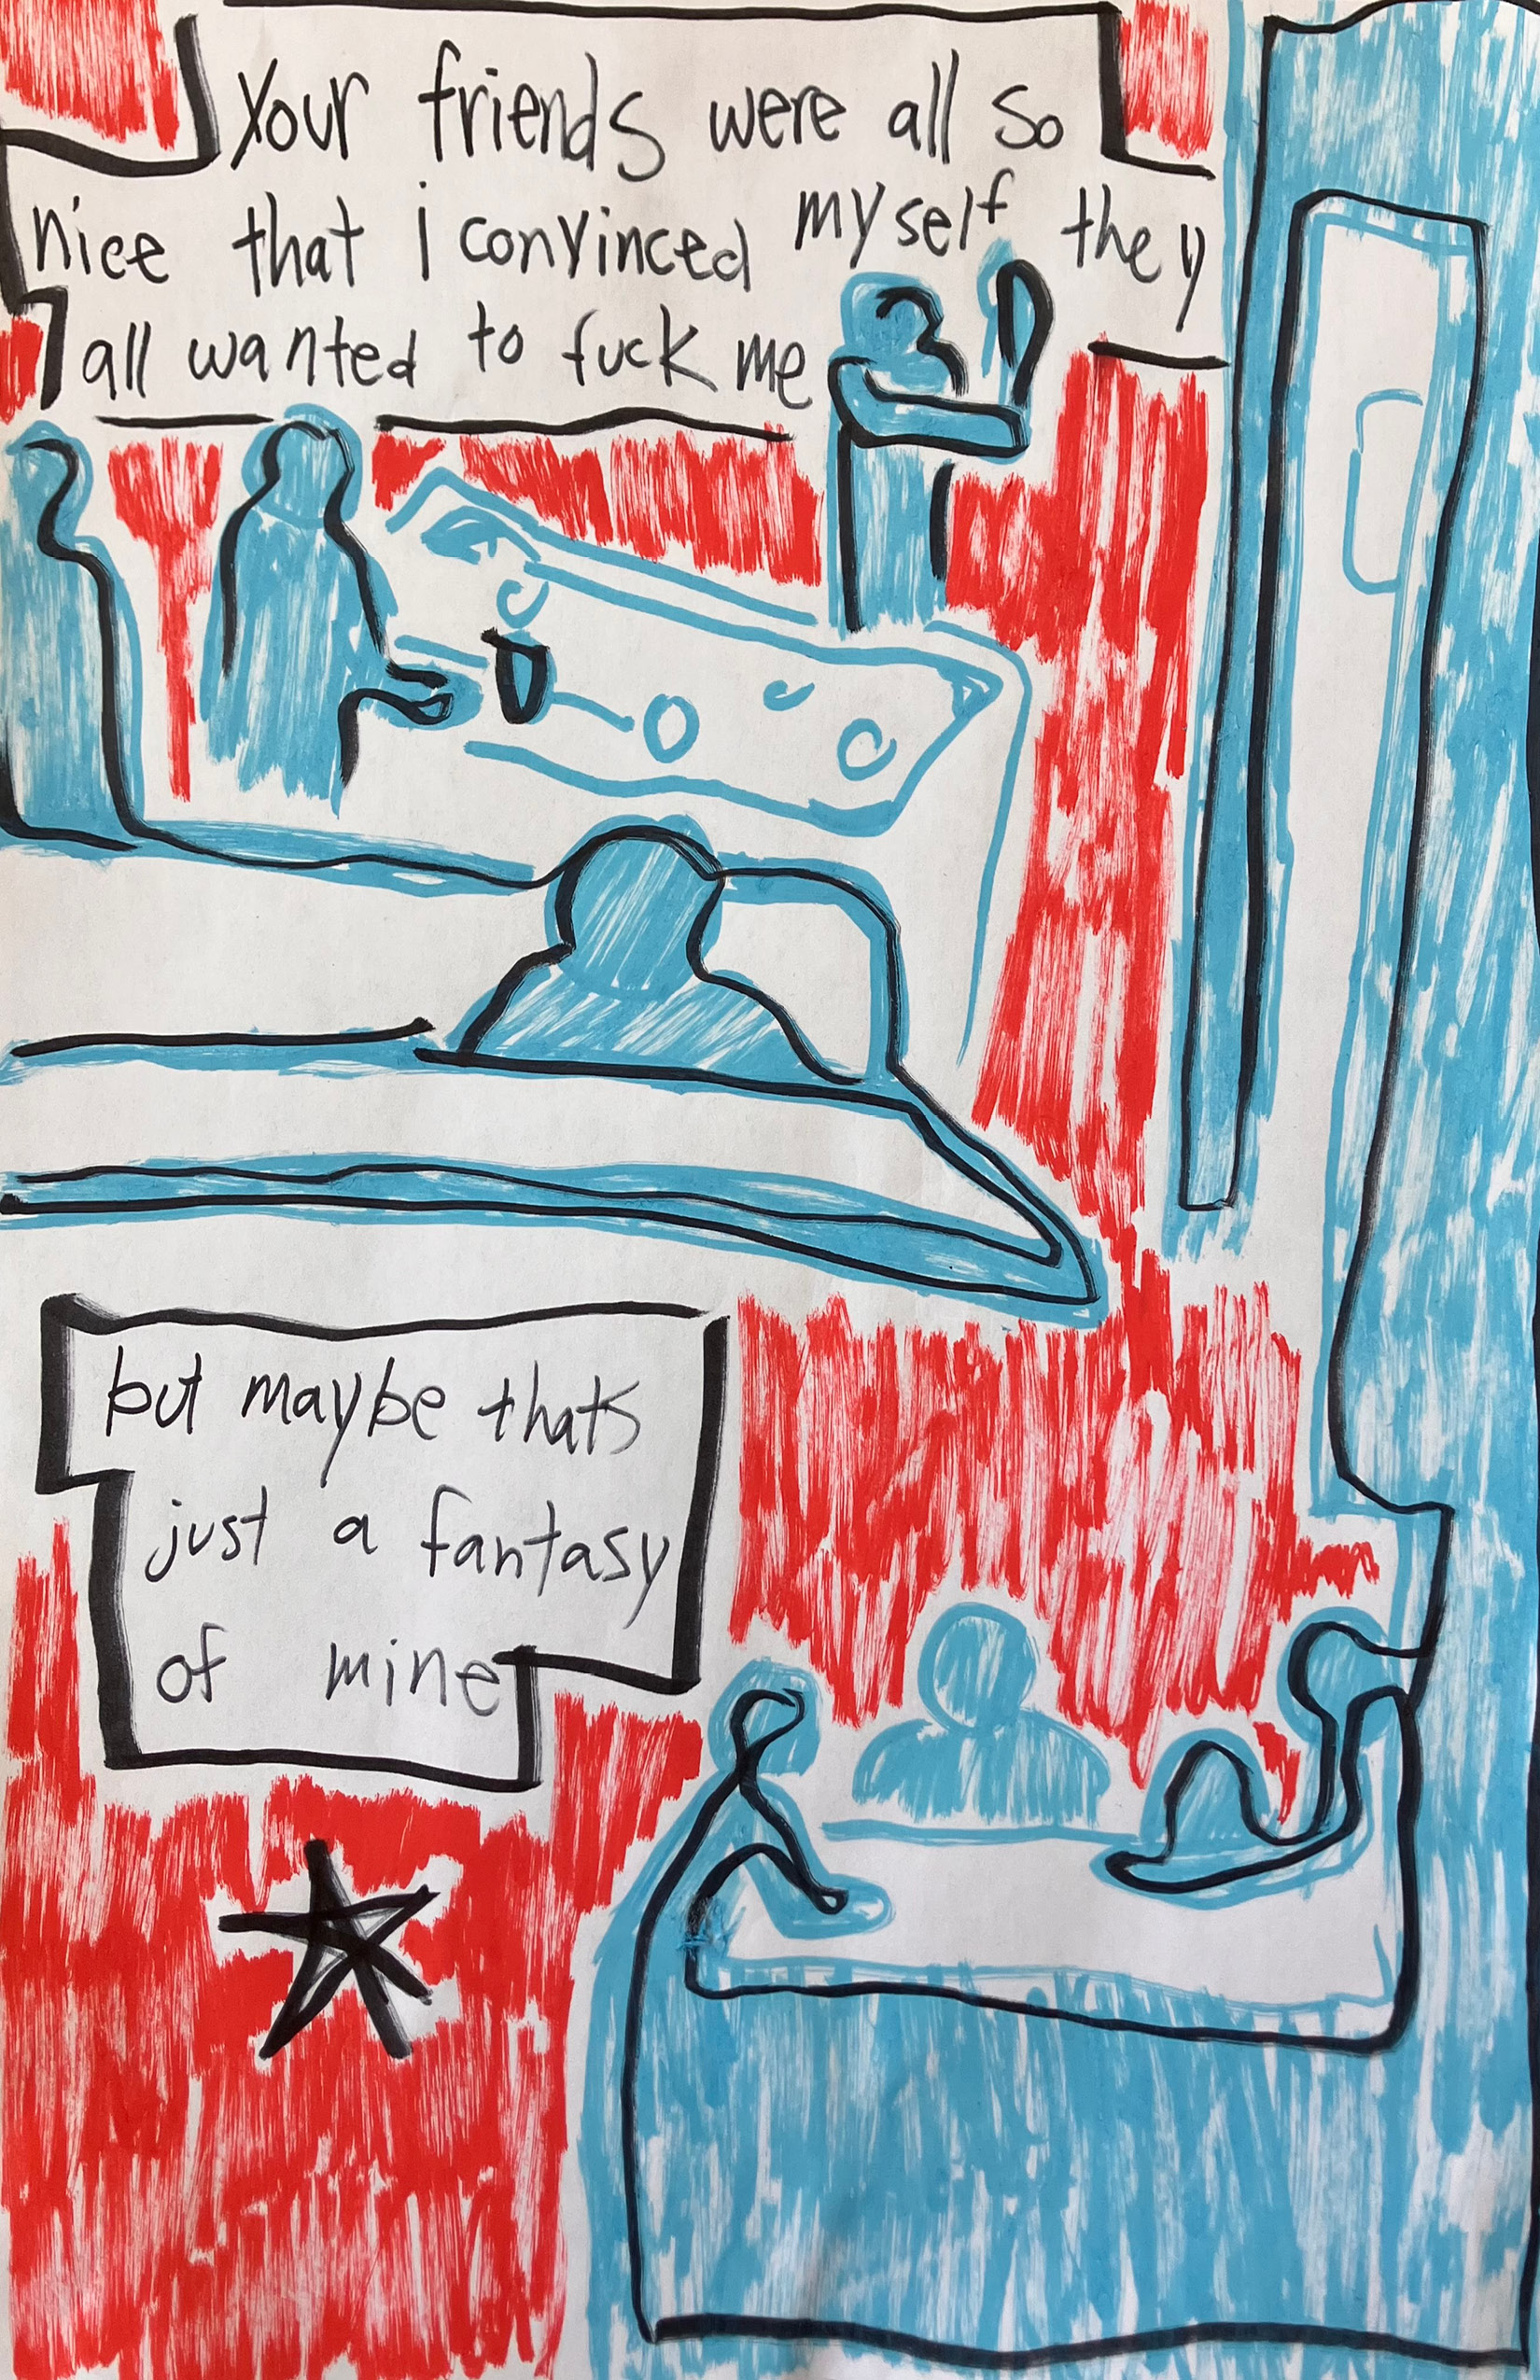 Your friends were all so
nice that i convinced myself they
all wanted to fuck me
but maybe thats
just a fantasy
of mine